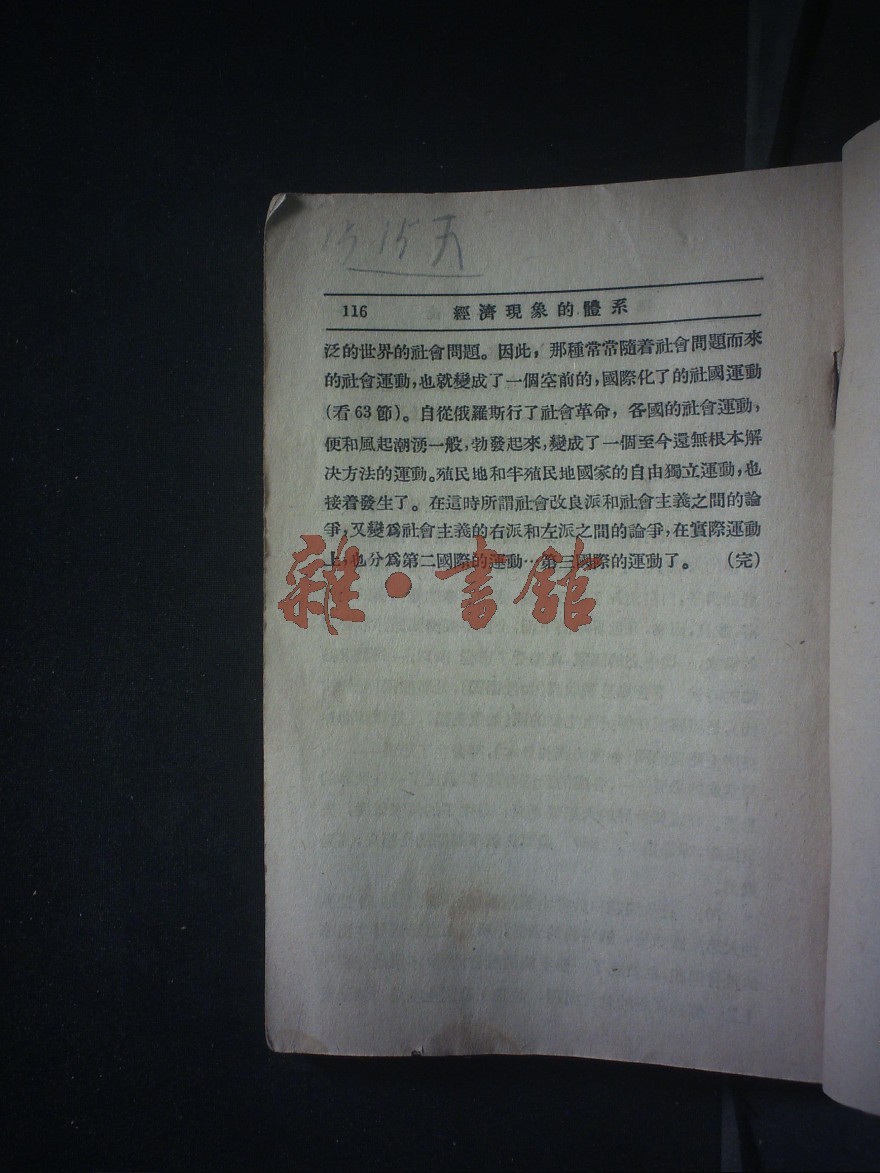 15天
116 經濟現象的體系
泛的世界的社會問題。因此，那種常常隨着社會問題而來
的社會運動，也就變成了一個空前的，國際化了的社國運動
(看63節)。自從俄羅斯行了社會革命，各國的社會運動，
便和風起潮湧一般，勃發起來，變成了一個至今還無根本解
决方法的運動。殖民地和牢殖民地國家的自由獨立運動，也
接着發生了。在這時所謂社會改良派和社會主義之間的論
爭，又變爲社會主義的右派和左派之間的論爭，在實際運動
上，也分爲第二國際的運動…第三國際的運動了。 (完)
雜·書館